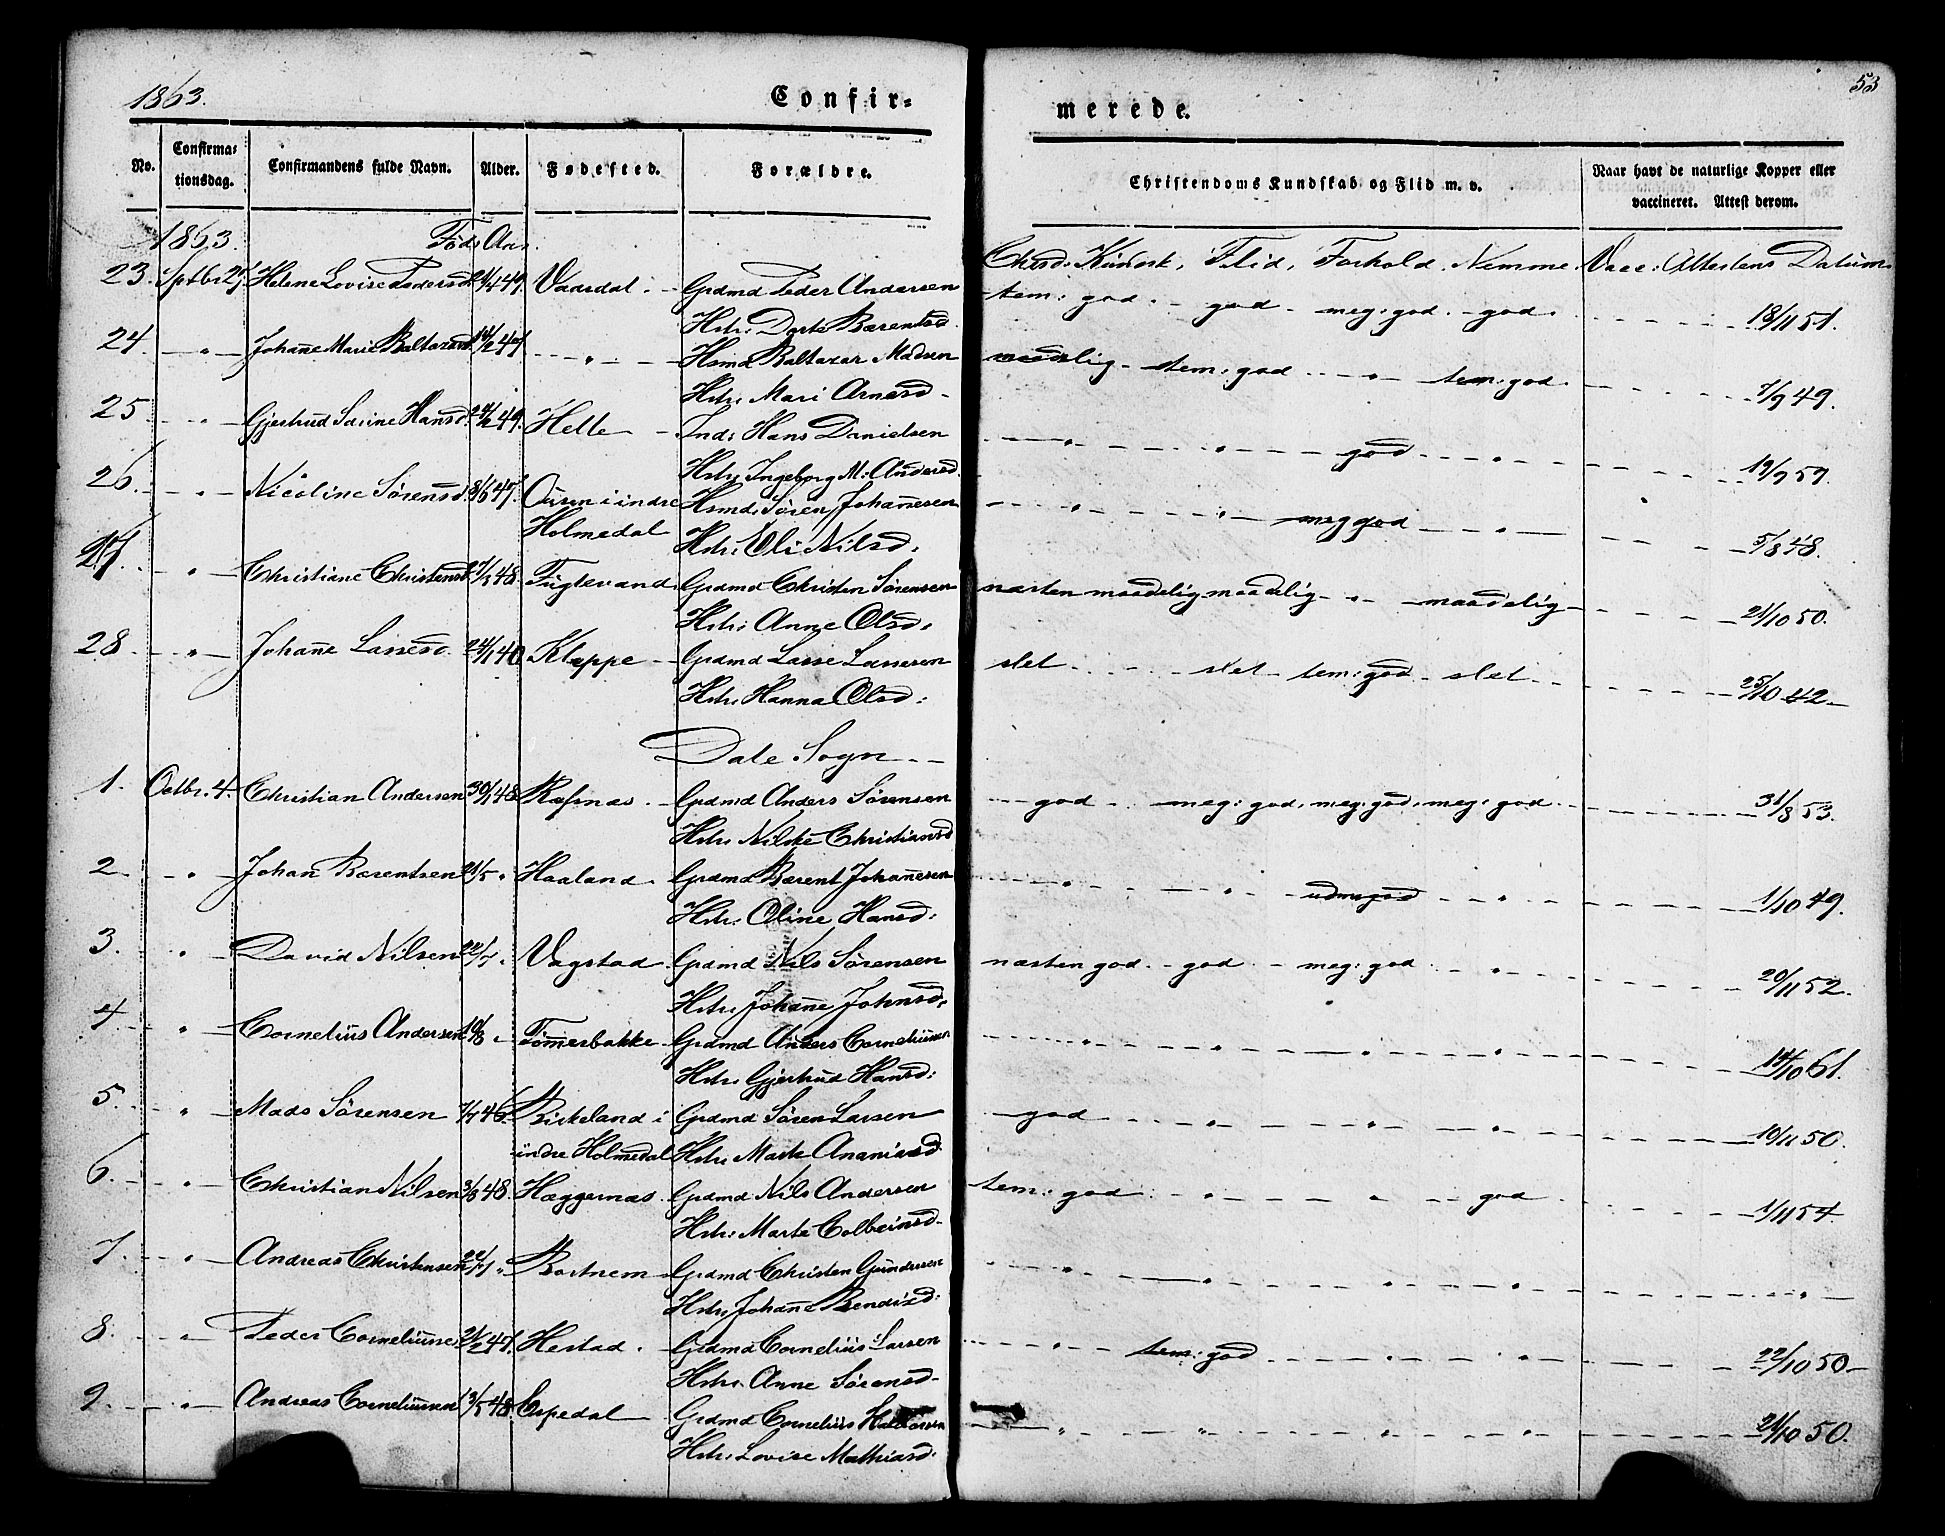 1863.
Confir=
merede.
53
No.
Confirma=
tionsdag.
Confirmandens fulde Navn.
Alder.
Fødested.
Forældre.
Christendoms Kundskab og Flid m. v.
Naar havt de naturlige Kopper eller
vaccineret. Attest derom.
1863. Føds Aar.
Chrsd: Kundsk, Flid, Forhold. Nemme. Vacc: Attestens Datum.
23. Sptbr 27 Helene Lovise Pedersd. 49. Vaardal. Grdmd Peder Andersen tem: god. god meg: god. god. 18/11 51.
Hstr: Dorte Bærentsd.
24 " Johan̄e Marie Baltazarsd. 14/2 47 " Hsmd Baltazar Madsen maadelig tem: god " tem: god 7/9 49.
Hstr: Mari Arnesd
25 " Gjertrud Serine Hansd. 24/2 49. Helle Ind: Hans Danielsen " " god " 19/7 57.
Hstr: Ingeborg M: Andersd.
26. " Nicoline Sørensd. 8/6 47. i indre Hsmd: Søren Johan̄esen " " meg god " 5/8 48.
Holmedal Hstr: Oli Nilsd.
27. " Christiane Christensd 7/3 48. Fuglevand. Grdmd Christen Sørensen næsten maadelig maadelig " maadelig 21/10 50.
Hstr: Anne Olsd.
28 " Johan̄e Lassesd. 24/1 40 Kleppe Grdmd Lasse Lassesen slet slet tem: god slet 25/10 42
Hstr: Hanna Olsd:
Dale Sogn
1. Octbr. 4. Christian Andersen 30/1 48 Ræfsnæs. Grdmd Anders Sørensen god meg: god, meg: god, meg: god. 31/8 53.
Hstr: Nilske Christiansd
2 " Johan Bærentsen 21/5 " Haaland. Grdmd Bærent Johan̄esen " " udm: god " 1/10 49.
Hstr: Oline Hansd:
3. " David Nilsen 22/7 " Vagstad Grdmd Nils Sørensen næsten god. god. meg: god " 20/11 52.
Hstr: Johan̄e Johnsd.
4 " Cornelius Andersen 10/8 " Tøm̄erbakke Grdmd Anders Corneliusen " " " " 14/10 61.
Hstr: Gjertrud Hansd:
5. " Mads Sørensen 7/7 46. Birkeland i Grdmd Søren Larsen god " " " 10/11 50.
indre Holmedal Hstr: Marte Ananiasd
6. " Christian Nilsen 3/8 48. Hæggernæs. Grdmd Nils Andersen tem: god " " god 1/11 54.
Hstr: Marte Colbeinsd
7. " Andreas Christensen 22/7 " Bortnem Grdmd Christen Gundersen " " " " "
Hstr: Johan̄e Bendixd:
8. " Peder Corneliusen 21/2 47. Hestad. Grdmd Cornelius Larsen " tem: god " " 22/10 50
Hstr: Anne Sørensd
9. " Andreas Corneliussen 13/5 48. Espedal Grdmd Cornelius " " " " 21/10 50.
Hstr: Lovise Mathiasd: